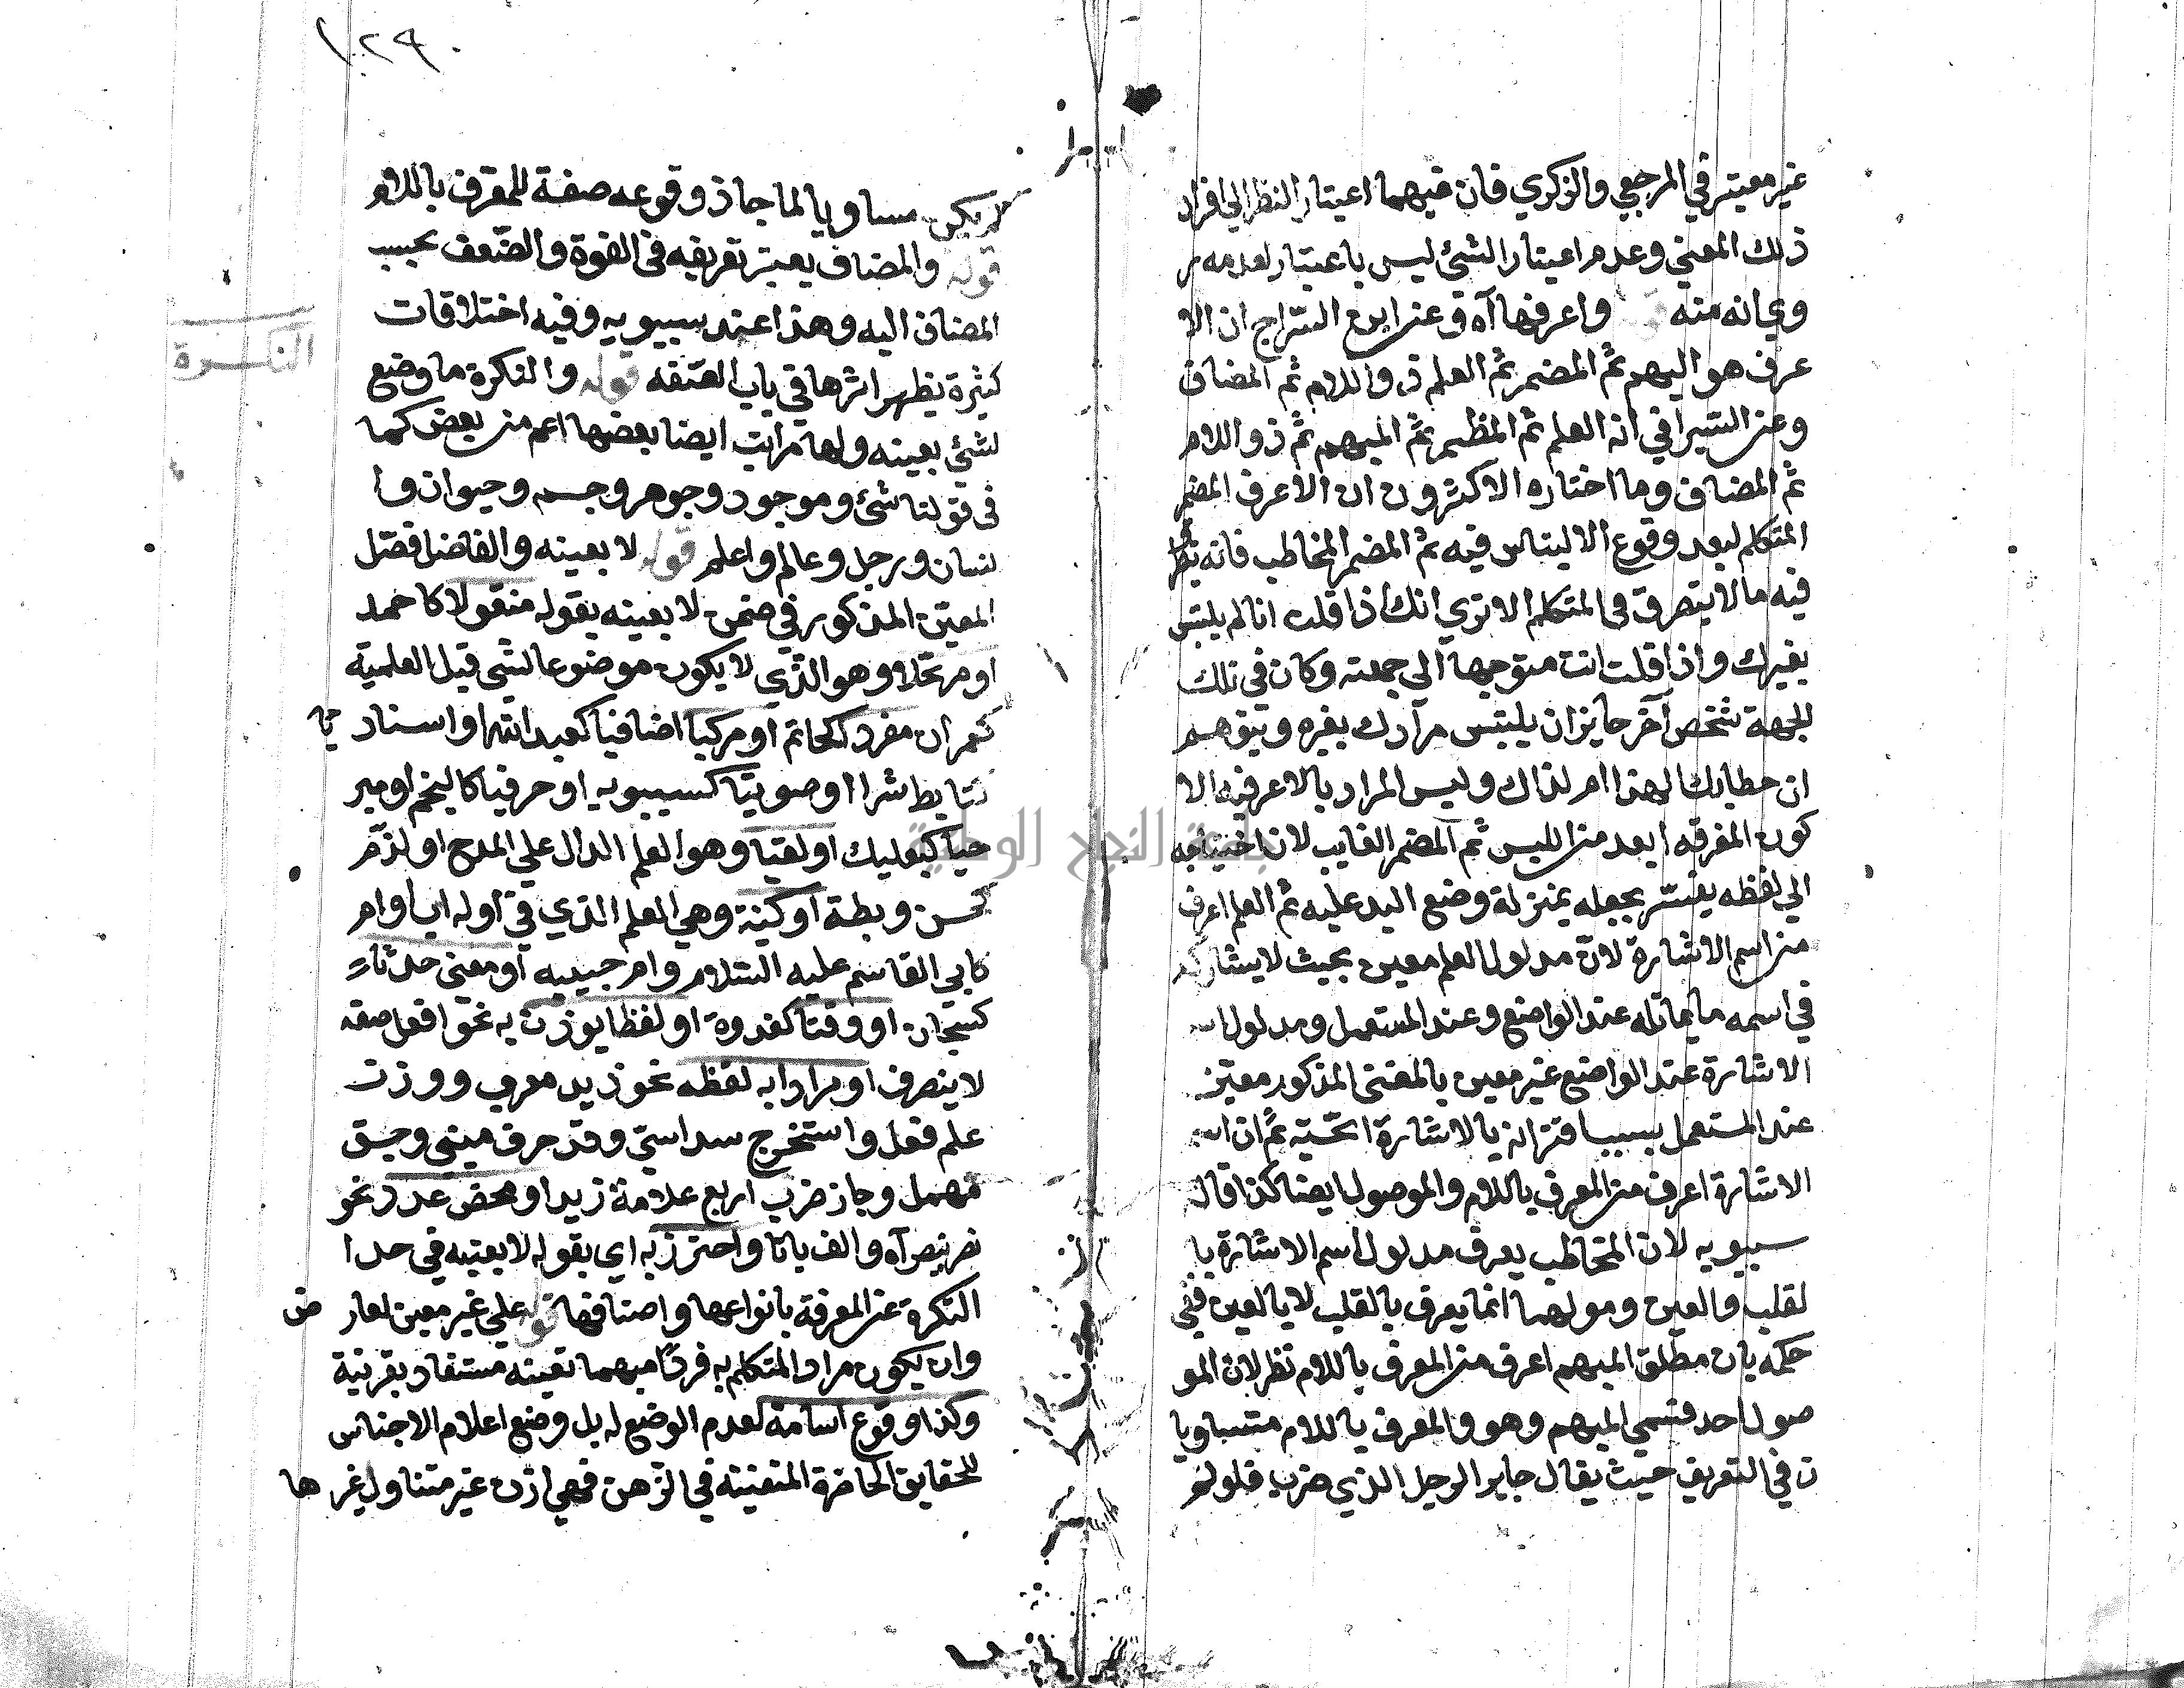 غير معيتبر في المرجعي والذكري فان فيهما اعيتار النظر الي افراد
ذلك المعني وعدم اعيتار الشئ ليس باعيتار لعدمه
وبيانه منه قوله واعرفها آه وعن ابن السّراج ان الا
عرف هو اليهم ثم المضمر ثم العلم ذو اللام ثم المضاف
وعن السيرافي انه العلم ثم المظمر ثم المبهم ثم ذو اللام
ثم المضاف وما اختاره الاكثرون ان الاعرف المضمر
المتكلم لبعد وقوع الاليتاس فيه ثم المضمر المخاطب فانه يتطرق
فيه ما لا يتصرق في المتكلم الا تري انك اذا قلت انا لم يلتبس
بغيرك واذا قلت انت متوجها الي جهة وكان في تلك
الجهة شخص آخر جايز ان يلتبس مرادك بغيره ويتوهم
ان خطابك لهذا ام لذاك وليس المراد بالاعرفيه الا
كون المفرقه ابعد من اللبس ثم المضمر الغايب لان احتياجه
الي لفظه يفسّر بجعله بمنزلة وضع اليد عليه ثم العلم اعرف
من اسم الاشارة لان مدلول العلم معين بحيث لا يشاركه
في اسمه ما يماثله عند الواضع وعند المستعمل ومدلول اسم
الاشارة عند الواضع غير معين بالمعني المذكور معين
عند المستعمل بسبب اقترانه بالاشارة الحسّيّه ثم ان اسم
الاشارة اعرف من المعرف باللام والموصول ايضا كذا قال
سيبويه لان المخاطب يعرف مدلول اسم الاشارة با
لقلب والعين ومولهما انما يعرف بالقلب لا بالعين ففي
حكمه بان مطلق المبهم اعرف من المعرف باللام نظر لان المو
صول احد قسمي المبهم وهو والمعرف باللام متساويا
ن في التعريف حيث يقال جاير الرجل الذي ضرب فلو لم
١٠٢٩٠
لم يكن مساويا لما جاز وقوعه صفة للمعرف باللام
قوله والمضاف يعيتبر تعريفه في القوة والضّعف بحسب
المضاف اليه وهذا عند سيبويه وفيه اختلافات
النكرة
كثيرة يظهر اثرها في باب الصّفه قوله والنكرة ما وضع
لشئ بعينه ولها مراتب ايضا بعضها اعم من بعض كما
في قولنا شئ وموجود وجوهر وجسم وحيوان وا
نسان ورجل وعالم واعلم قوله لا بعينه والفاضل فصّل
المعيّن المذكور في ضمن لا بعينه بقوله منقولا كاحمد
او مرتجلا وهو الذي لا يكون موضوعا لشئ قبل العلمية
كعمران مفرد كحاتم او مركبا اضافيا كعبد الله او اسناد يا
كتابط شرا او صوتيّا كسيبويه او حرفيا كالنجم او مير
جيا كبعلبك او لقبا وهو العلم الدال علي المدح او لذم
كحسن وبطة او كنية وهي العلم الذي في اوله اب او ام
كابي القاسم عليه السّلام وام حبيبه او معني حدثا
كسبحان او وقتا كغدوة او لفظا يوزن به نحو افعل صفه
لا ينصرف او مرادا به لفظه نحو زيد معرب ووزن
علم فعل واستخرج سداسيّ وقد حرف مبني وجسق
مهمل وجاز ضرب اربع علامة زيد او محض عدد نحو
نصر ينصر آه والف با تا واحترز به اي بقوله لا بعينه في حد ا
النكرة عن المعرفة بانواعها واصنافها قوله علي غير معين لعار ض
وان يكون مراد المتكلم به فردًا مبهما تعينه مستفاد بقرينة
وكذا وقوع اسامة لعدم الوضع له بل وضع اعلام الاجناس
للحقايق الحاضرة المتعينة في الذهن فهي اذن غير متناول غير ها
جامعة النجاح الوطنية